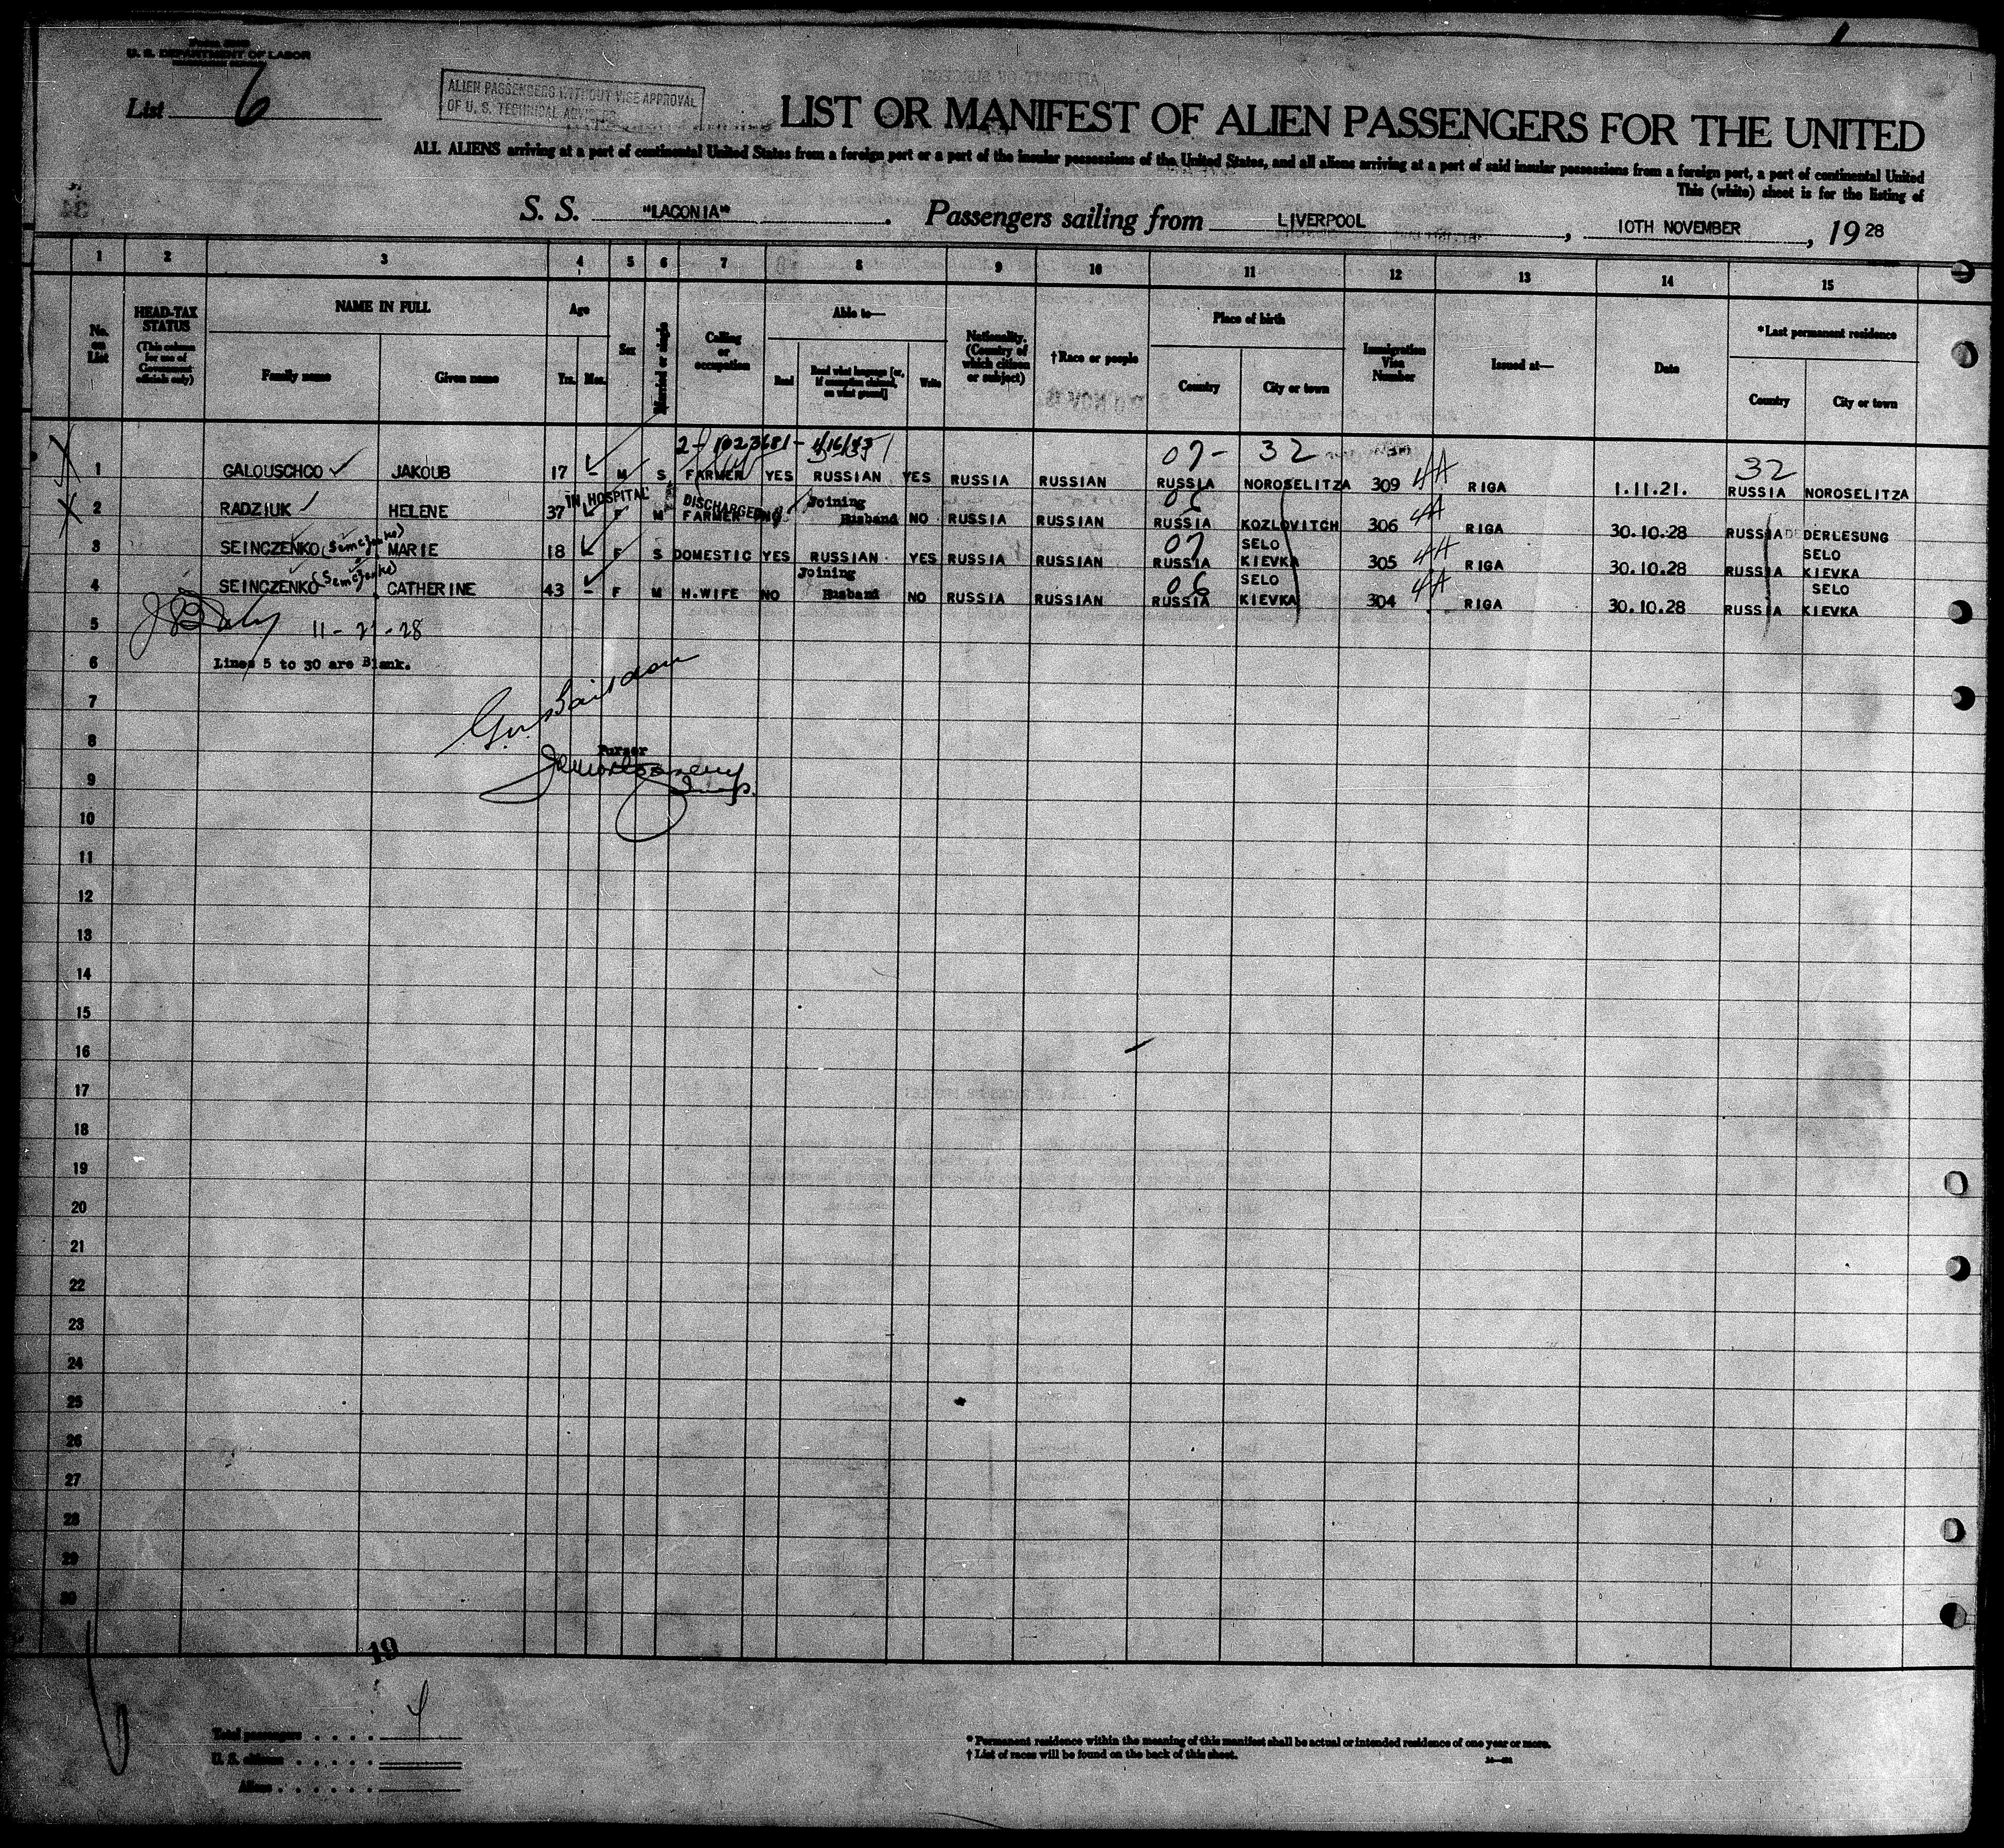 U. S. DEPARTMENT OF LABOR
List 6
ALIEN PASSENGERS WITHOUT VISE APPROVAL
OF U. S. TECHNICAL
LIST OR MANIFEST OF ALIEN PASSENGERS FOR THE UNITED
ALL ALIENS arriving at a port of continental United States from a foreign port or a port of the insular possessions of the United States, and all aliens arriving at a port of said insular possessions from a foreign port, a port of continental United
This (white) sheet is for the listing of
S. S. "LACONIA". Passengers sailing from LIVERPOOL, 10TH NOVEMBER, 1928
1 2 3 4 5 6 7 8 9 10 11 12 13 14 15
No. on List
HEAD-TAX STATUS
(This column for use of Government officials only)
NAME IN FULL
Family name
Given name
Age
Yrs. Mos.
Sex
Married or single
Calling or occupation
Able to—
Read
Read what language [or, if exemption claimed, on what ground]
Write
Nationality. (Country of which citizen or subject)
†Race or people
Place of birth
Country
City or town
Immigration Visa Number
Issued at—
Date
*Last permanent residence
Country
City or town
2- 1023681- 07- 32 32
1 GALOUSCHCO JAKOUB 17 - M S FARMER YES RUSSIAN YES RUSSIA RUSSIAN RUSSIA NOROSELITZA 309 RIGA 1.11.21. RUSSIA NOROSELITZA
IN HOSPITAL DISCHARGED Joining 06
2 RADZIUK HELENE 37 F M FARMER NO Husband NO RUSSIA RUSSIAN RUSSIA KOZLOVITCH 306 RIGA 30.10.28 RUSSIA DERLESUNG
07 SELO SELO
3 SEINCZENKO MARIE 18 F S DOMESTIC YES RUSSIAN YES RUSSIA RUSSIAN RUSSIA KIEVKA 305 RIGA 30.10.28 RUSSIA KIEVKA
Joining 06 SELO SELO
4 SEINCZENKO CATHERINE 43 - F M H.WIFE NO Husband NO RUSSIA RUSSIAN RUSSIA KIEVKA 304 RIGA 30.10.28 RUSSIA KIEVKA
5 11-21-28
6 Lines 5 to 30 are Blank.
7
8 Purser
9
10
11
12
13
14
15
16
17
18
19
20
21
22
23
24
25
26
27
28
29
30
19
Total passengers 4
U. S. citizens
Aliens
* Permanent residence within the meaning of this manifest shall be actual or intended residence of one year or more.
† List of races will be found on the back of this sheet.